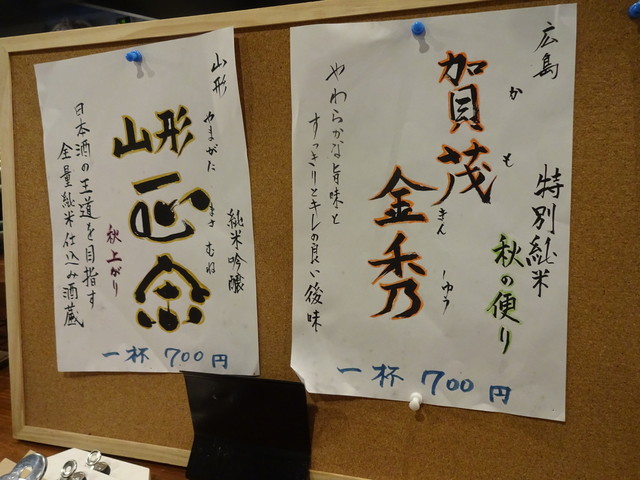 広島
特別純米
秋の便り
賀茂
かも
金秀
きんしゅう
やわらかな旨味と
すっきりとキレの良い後味
一杯 700円
山形
純米吟醸
やまがた まさむね
山形
正宗
秋上がり
日本酒の王道を目指す
全量純米仕込み酒蔵
一杯 700円